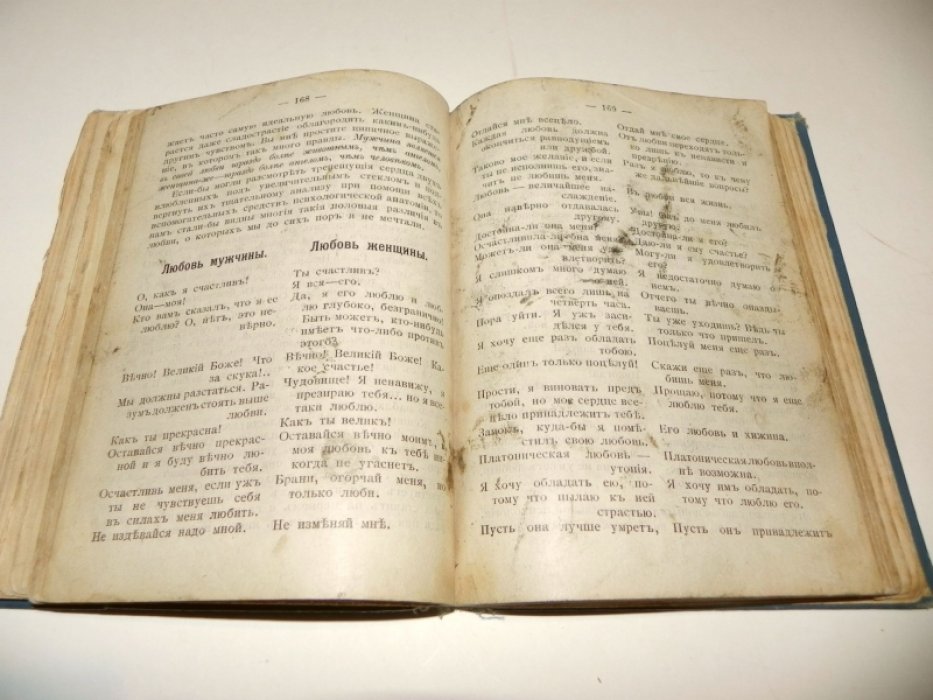 — 168 —
жаетъ часто самую идеальную любовь. Женщина ста-
рается даже сладострастіе облагородить какимъ-нибудь
другимъ чувствомъ. Вы мнѣ простите циничное выраже-
ніе, въ которомъ такъ много правды. Мужчина является
въ своей любви гораздо болѣе животнымъ, чѣмъ ангеломъ,
женщина-же—гораздо болѣе ангеломъ, чѣмъ человѣкомъ.
Если-бы могли разсмотрѣть трепещущія сердца двухъ
влюбленныхъ подъ увеличительнымъ стекломъ и под-
вергнуть ихъ тщательному анализу при помощи всѣхъ
вспомогательныхъ средствъ психологической анатоміи, то
намъ стали-бы видны многія такія половыя различія въ
любви, о которыхъ мы до сихъ поръ и не мечтали.
Любовь мужчины.
О, какъ я счастливъ!
Она—моя!
Кто вамъ сказалъ, что я ее
люблю? О, нѣтъ, это не-
вѣрно.
Вѣчно! Великій Боже! Что
за скука!..
Мы должны разстаться. Ра-
зумъ долженъ стоять выше
любви.
Какъ ты прекрасна!
Оставайся вѣчно прекрас-
ной и я буду вѣчно лю-
бить тебя.
Осчастливь меня, если ужъ
ты не чувствуешь себя
въ силахъ меня любить.
Не издѣвайся надо мной.
Любовь женщины.
Ты счастливъ?
Я вся—его.
Да, я его люблю и люб-
лю глубоко, безгранично!
Быть можетъ, кто-нибудь
имѣетъ что-либо противъ
этого?
Вѣчно! Великій Боже! Ка-
кое счастье!
Чудовище! Я ненавижу, я
презираю тебя... но я все-
таки люблю.
Какъ ты великъ!
Оставайся вѣчно моимъ, и
моя любовь къ тебѣ ни-
когда не угаснетъ.
Брани, огорчай меня, но
только люби.
Не измѣняй мнѣ.
— 169 —
Отдайся мнѣ всецѣло.
Каждая любовь должна
окончиться равнодушіемъ
или дружбой.
Таково мое желаніе, и если
ты не исполнишь его, зна-
читъ не любишь меня.
Любовь — величайшее на-
слажденіе.
Она навѣрно отдавалась
другому.
Достойна-ли она меня?
Осчастливила-ли она меня?
Можетъ-ли она меня удо-
влетворить?
Я слишкомъ много думаю
о ней.
Я опоздалъ всего лишь на
четверть часа.
Пора уйти. Я ужъ заси-
дѣлся у тебя.
Я хочу еще разъ обладать
тобою.
Еще одинъ только поцѣлуй!
Прости, я виноватъ предъ
тобой, но мое сердце все-
цѣло принадлежитъ тебѣ.
Замокъ, куда-бы я помѣ-
стилъ свою любовь.
Платоническая любовь —
утопія.
Я хочу обладать ею, по-
тому что пылаю къ ней
страстью.
Пусть она лучше умретъ,
Отдай мнѣ свое сердце.
Отъ любви переходятъ толь-
ко лишь къ ненависти и
презрѣнію.
Разъ я люблю, то къ чему
же дальнѣйшіе вопросы?
Въ любви вся жизнь.
Увы! Онъ до меня любилъ
другую.
Достойна-ли я его?
Даю-ли я ему счастье?
Могу-ли я удовлетворить
его?
Я недостаточно думаю о
немъ.
Отчего ты вѣчно опазды-
ваешь.
Ты уже уходишь? Вѣдь ты
только что пришелъ.
Поцѣлуй меня еще разъ.
Скажи еще разъ, что лю-
бишь меня.
Прощаю, потому что я еще
люблю тебя.
Его любовь и хижина.
Платоническая любовь впол-
нѣ возможна.
Я хочу имъ обладать, по-
тому что люблю его.
Пусть онъ принадлежитъ